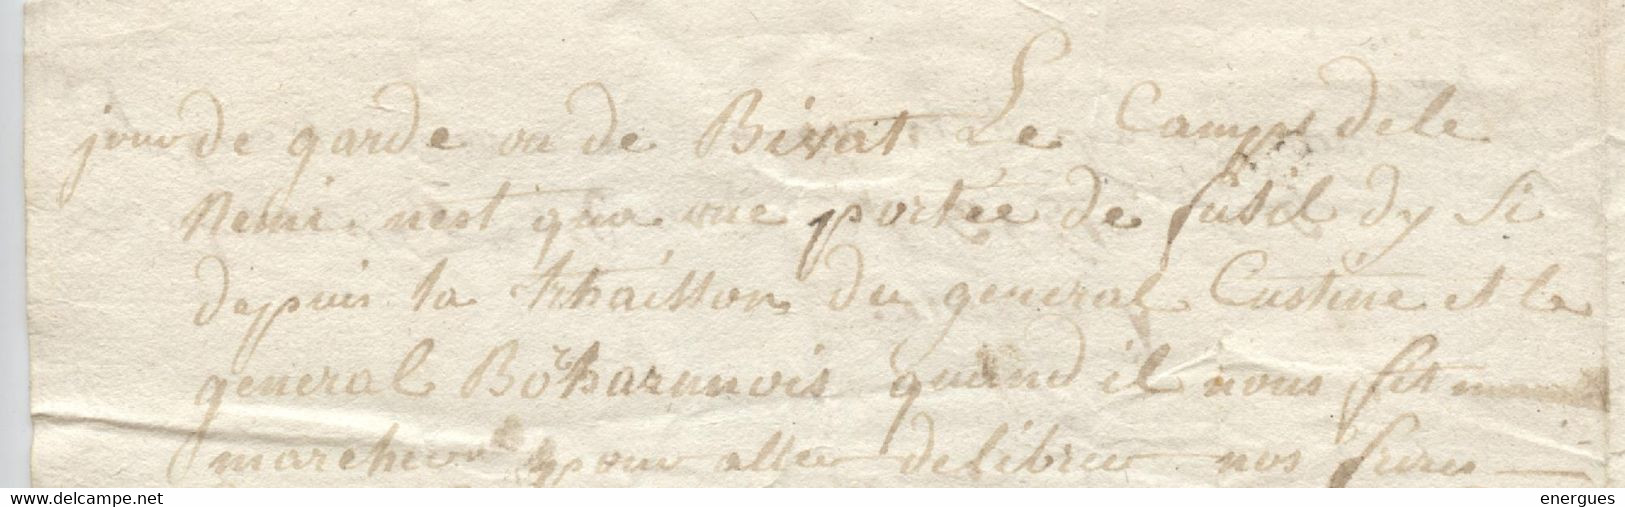 jour de garde ou de Bivat Le Camps dele
nemi nest qua une portée de fusil dy Si
depuis la trhaisson du general Custine et le
general Boharunois quand il nous fit
marcher pour aller delibrer nos freres
www.delcampe.net
energues